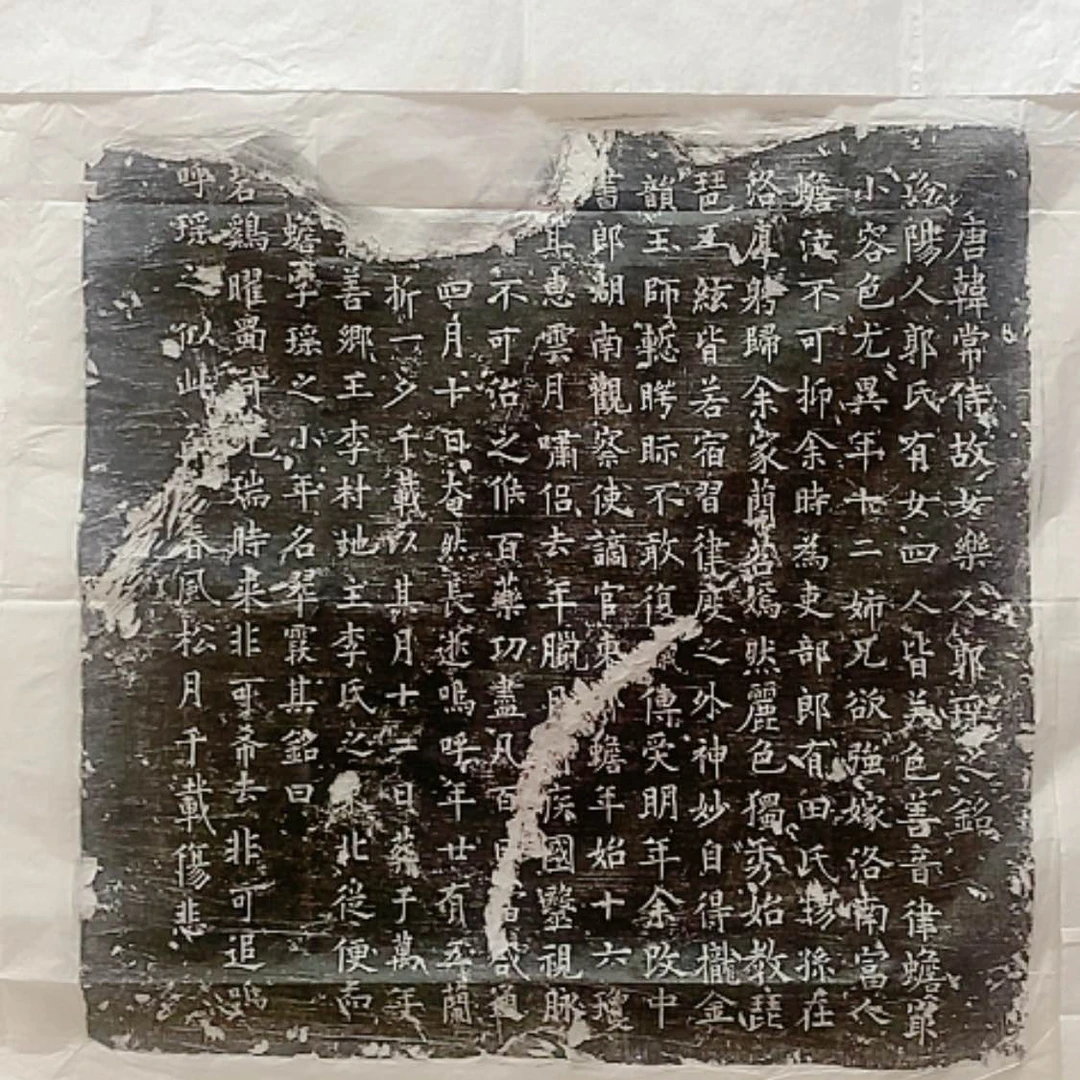 唐韓常侍故女樂人郭瑶之銘
洛陽人郭氏有女四人皆美色善音律蟾最
小容色尤異年十二姉兄欲強嫁洛南富人
蟾泣不可抑余時為吏部郎有田氏楊孫在
洛厚躬歸余家蘭若嫣然麗色獨秀始教琵
琶五絃皆若宿習律度之外神妙自得攏金
韻玉師聼腭眎不敢復傳受明年余改中
書郎湖南觀察使謫官東蟾年始十六瓊
其惠雲月嘯侶去年臘月疾國毉視脉
不可治之俟百藥功盡凡百日哉通
四月十日奄然長逝嗚呼年廿有五蘭
折一夕千載以其月十二日葬于萬年
善鄉王李村地主李氏之北從便而
蟾字瑶之小年名翠霞其銘曰
若鷄曜蜀瑞時来非可希去非可追嗚
呼瑶之似此春風松月千載傷悲